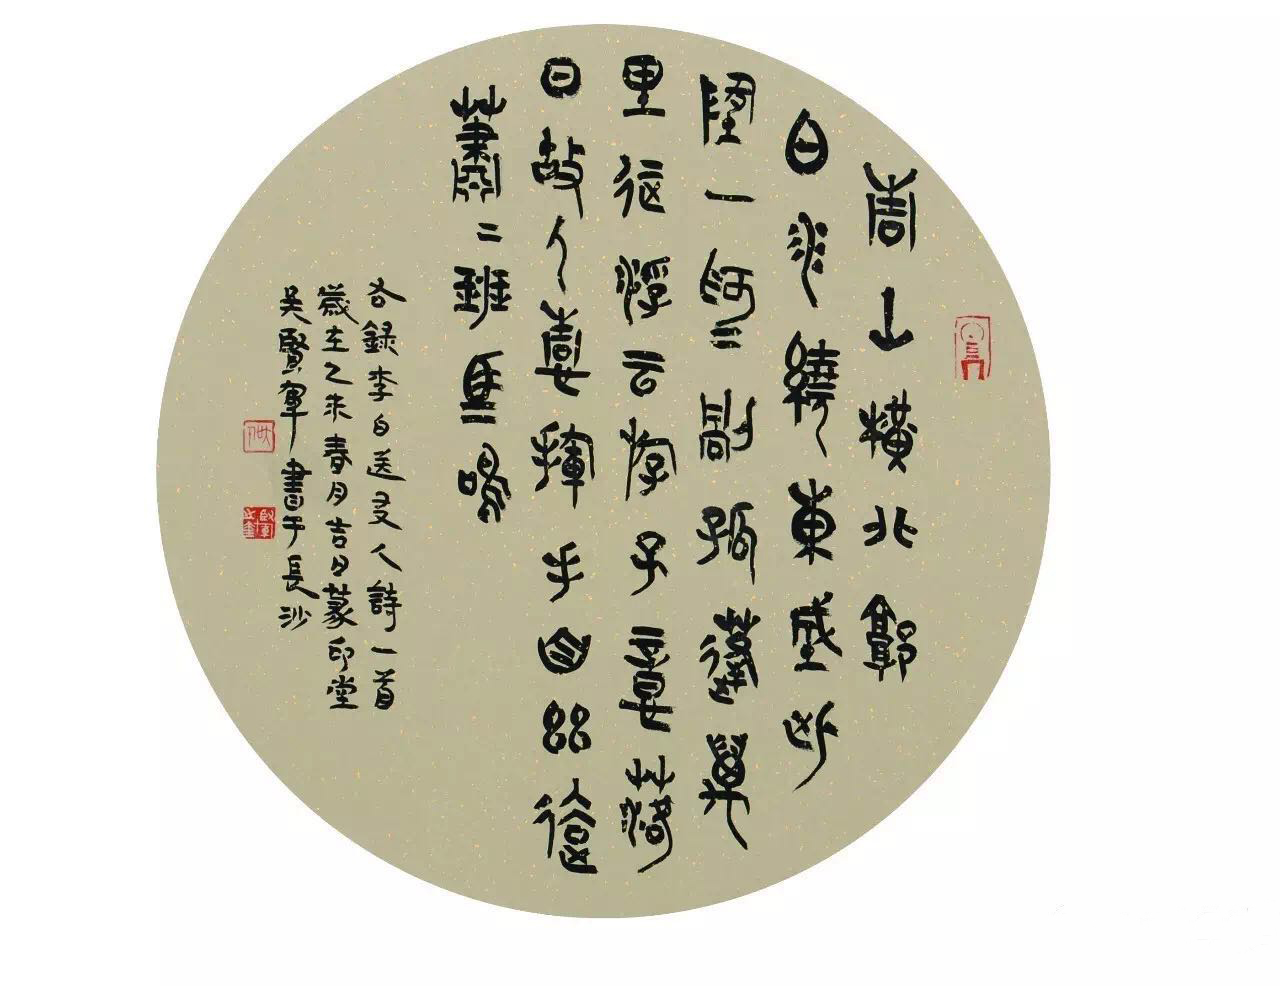 青山橫北郭
白水繞東城此
地一為別孤蓬萬
里征浮云游子意落
日故人情揮手自茲去
蕭〻班馬鳴
右錄李白送友人詩一首
歲在乙未春月吉日篆印堂
吳賢軍書于長沙